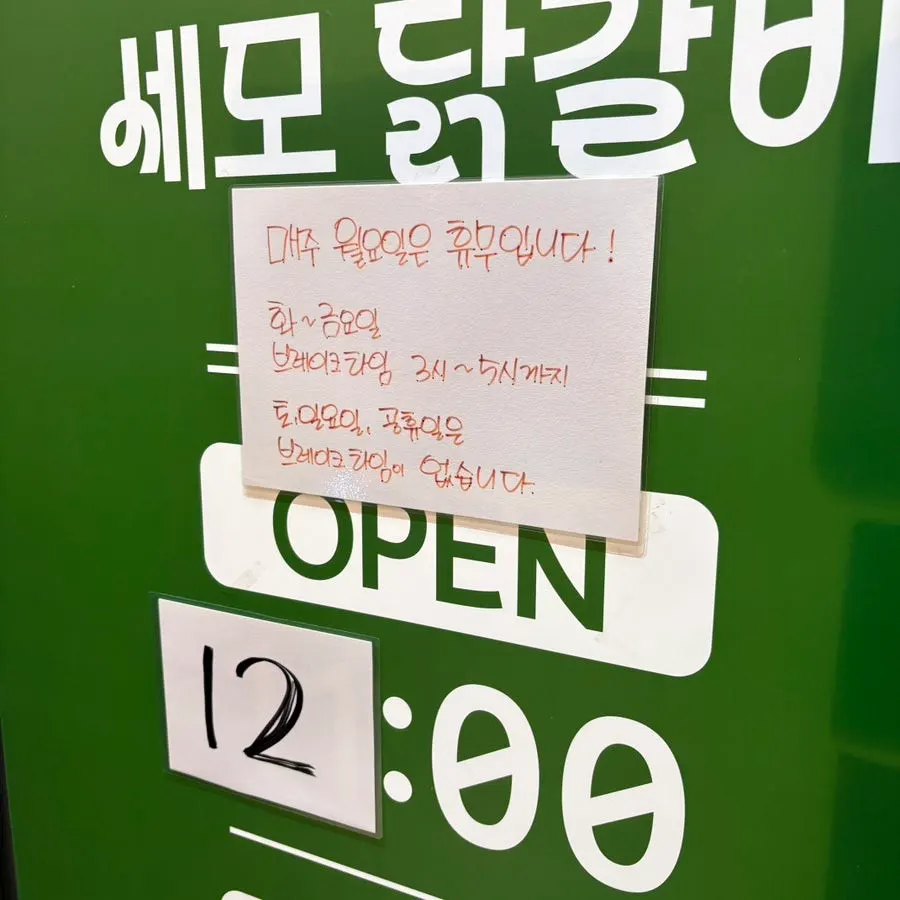 세모 닭갈비
매주 월요일은 휴무입니다!
화~금요일
브레이크타임 3시~5시까지
토,일요일, 공휴일은
브레이크타임이 없습니다.
OPEN
12:00